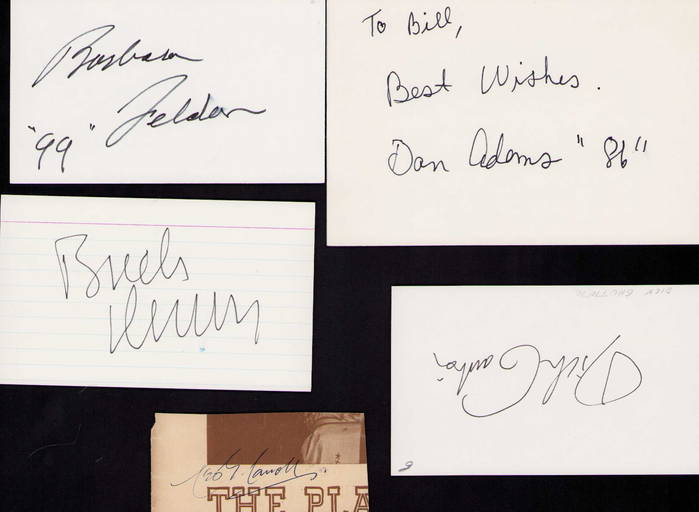 Barbara
Feldon
"99"
To Bill,
Best Wishes.
Don Adams "86"
Buck
Henry
Dick Gautier
Leo G. Carroll
THE PLA